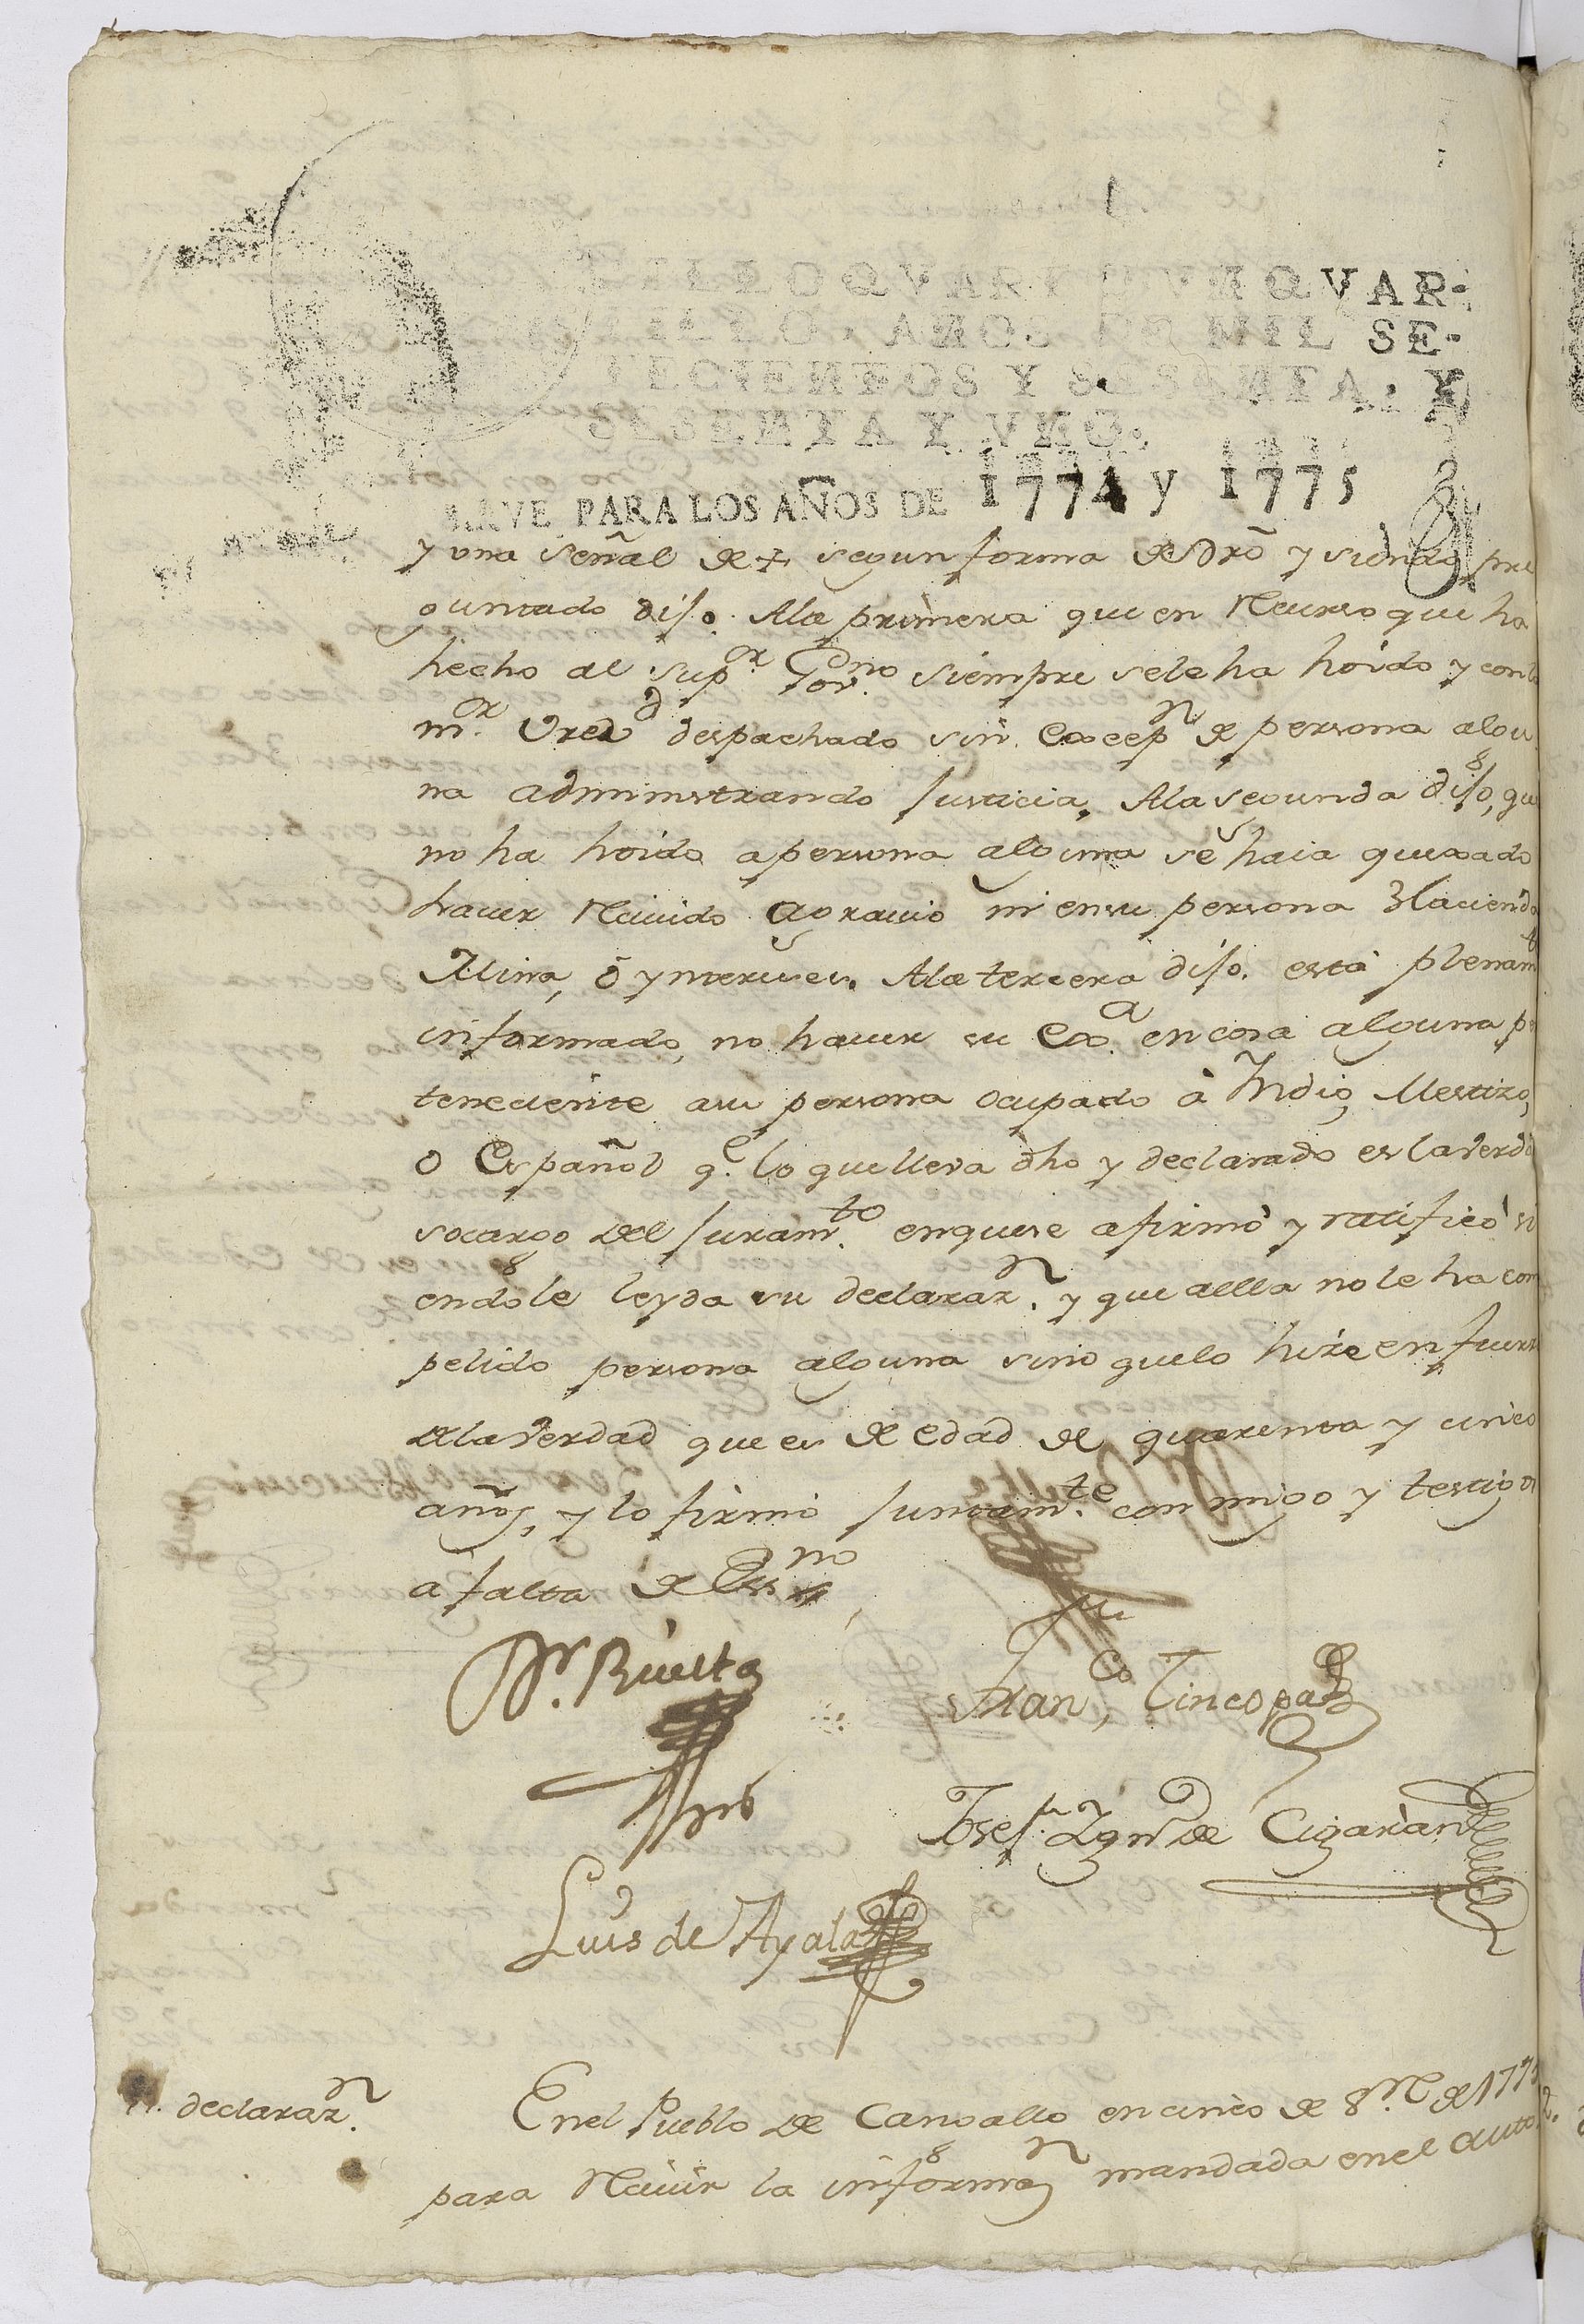 VN QVARTILLO QVARTILLO, VN QVAR-
TILLO, AÑOS DE MIL SE-
TECIENTOS Y SESENTA, Y
SESENTA Y VNO.
PARA LOS AÑOS DE 1774 y 1775
y una señal de + segun forma de dro y siendo pre
guntado dijo. Ala primera que en Recurso que ha
hecho al Sup.or Gov.no siempre sele ha hoido y con la
m.or despachado sin excep.n de persona algu
na administrando Justicia. Ala segunda dijo, que
no ha hoido apersona alguna se haia quexado
haver Recivido agravio ni ensu persona Hacienda
Mina, ó yntereses. Ala tercera dijo. està plenam.te
informado, no haver su Ex.a en cosa alguna per
teneciente asu persona ocupado à Indio, Mestizo,
o Español q.e lo quelleva dho y declarado es laverdad
socargo del Juram.to enquese afirmò y ratificò si
endole leyda su declaraz.n y que aella nole ha com
pelido persona alguna sino quelo hize en fuerza
dela verdad que es de edad de quarenta y cinco
años, y lo firmò Juntam.te con migo y testigos
a falta de Ess.no
D.r Rivelta
Fran.co Tincopa
Josef Ign.o de Cigaràn
Luis de Ayala
declaraz.n
Enel Pueblo de Cangallo en cinco de 8.re de 177
para Recivir la informaz.n mandada enel auto